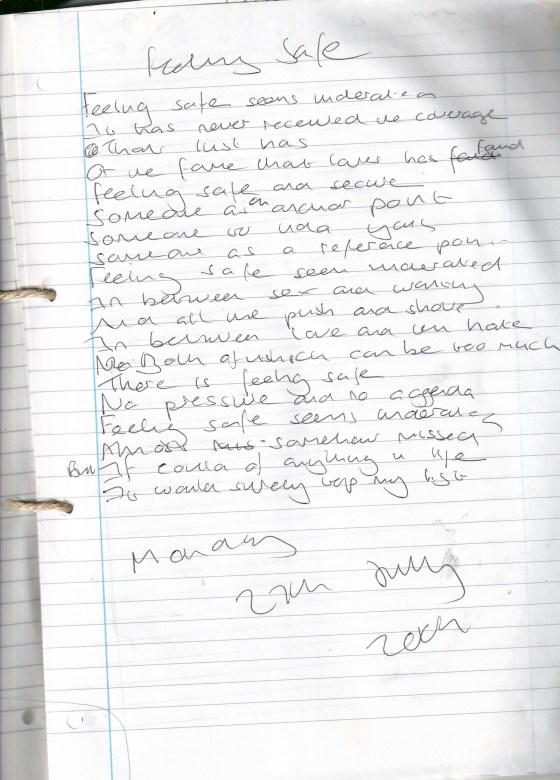 Feeling Safe
Feeling safe seems underated
It has never received the coverage
That lust has
Or the fame that love has found
feeling safe and secure
Someone as an anchor point
Someone to hold yours
someone as a reference point
Feeling safe seem underated
In between sex and wanting
And all the push and shove
In between love and hate
Both of which can be too much
There is feeling safe
No pressure and no agenda
Feeling safe seems underated
Almost somehow missed
But If could of anything in life
It would surely top my list
Monday
27th July